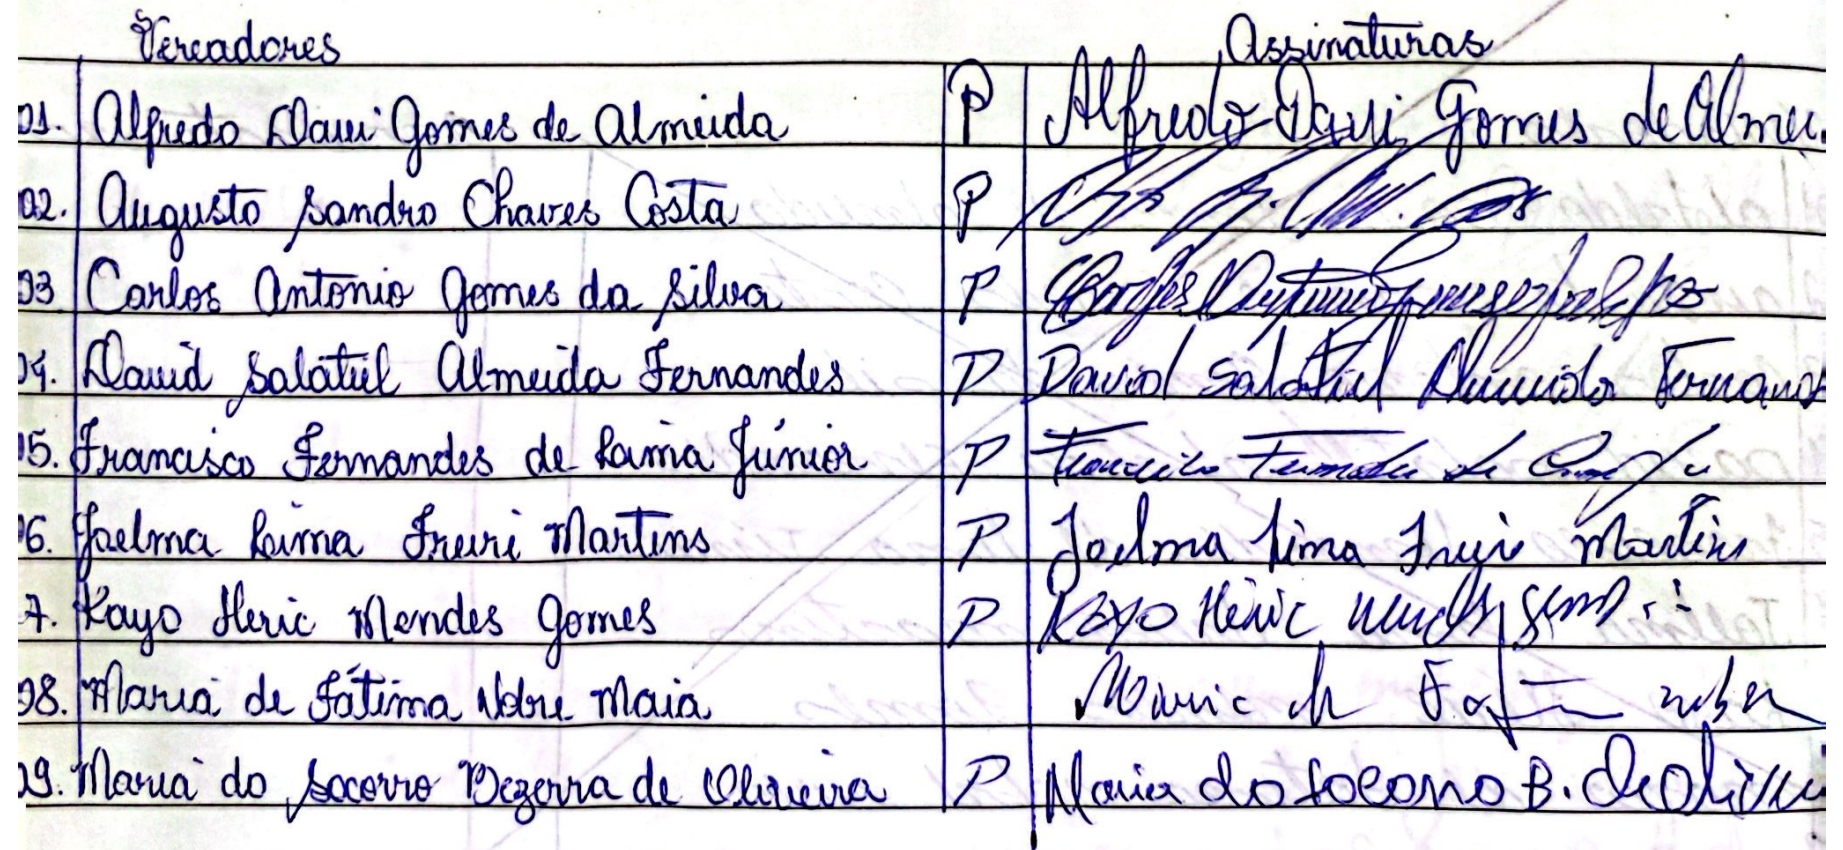 Vereadores Assinaturas
01. Alfredo Davi Gomes de Almeida P Alfredo Davi Gomes de Almei
02. Augusto Sandro Chaves Costa P
03 Carlos Antonio Gomes da Silva P Carlos Antonio Gomes
04. David Salatiel Almeida Fernandes P David Salatiel Almeida Fernand
05. Francisco Fernandes de Lima Júnior P Francisco Fernandes de
06. Joelma Lima Freire Martins P Joelma Lima Freire Martins
7. Kayo Heric Mendes Gomes P Kayo Heric Mendes Gomes
08. Maria de Fátima Nobre Maia Maria de Fatima Nobre
09. Maria do Socorro Bezerra de Oliveira P Maria do Socorro B. de Olivei